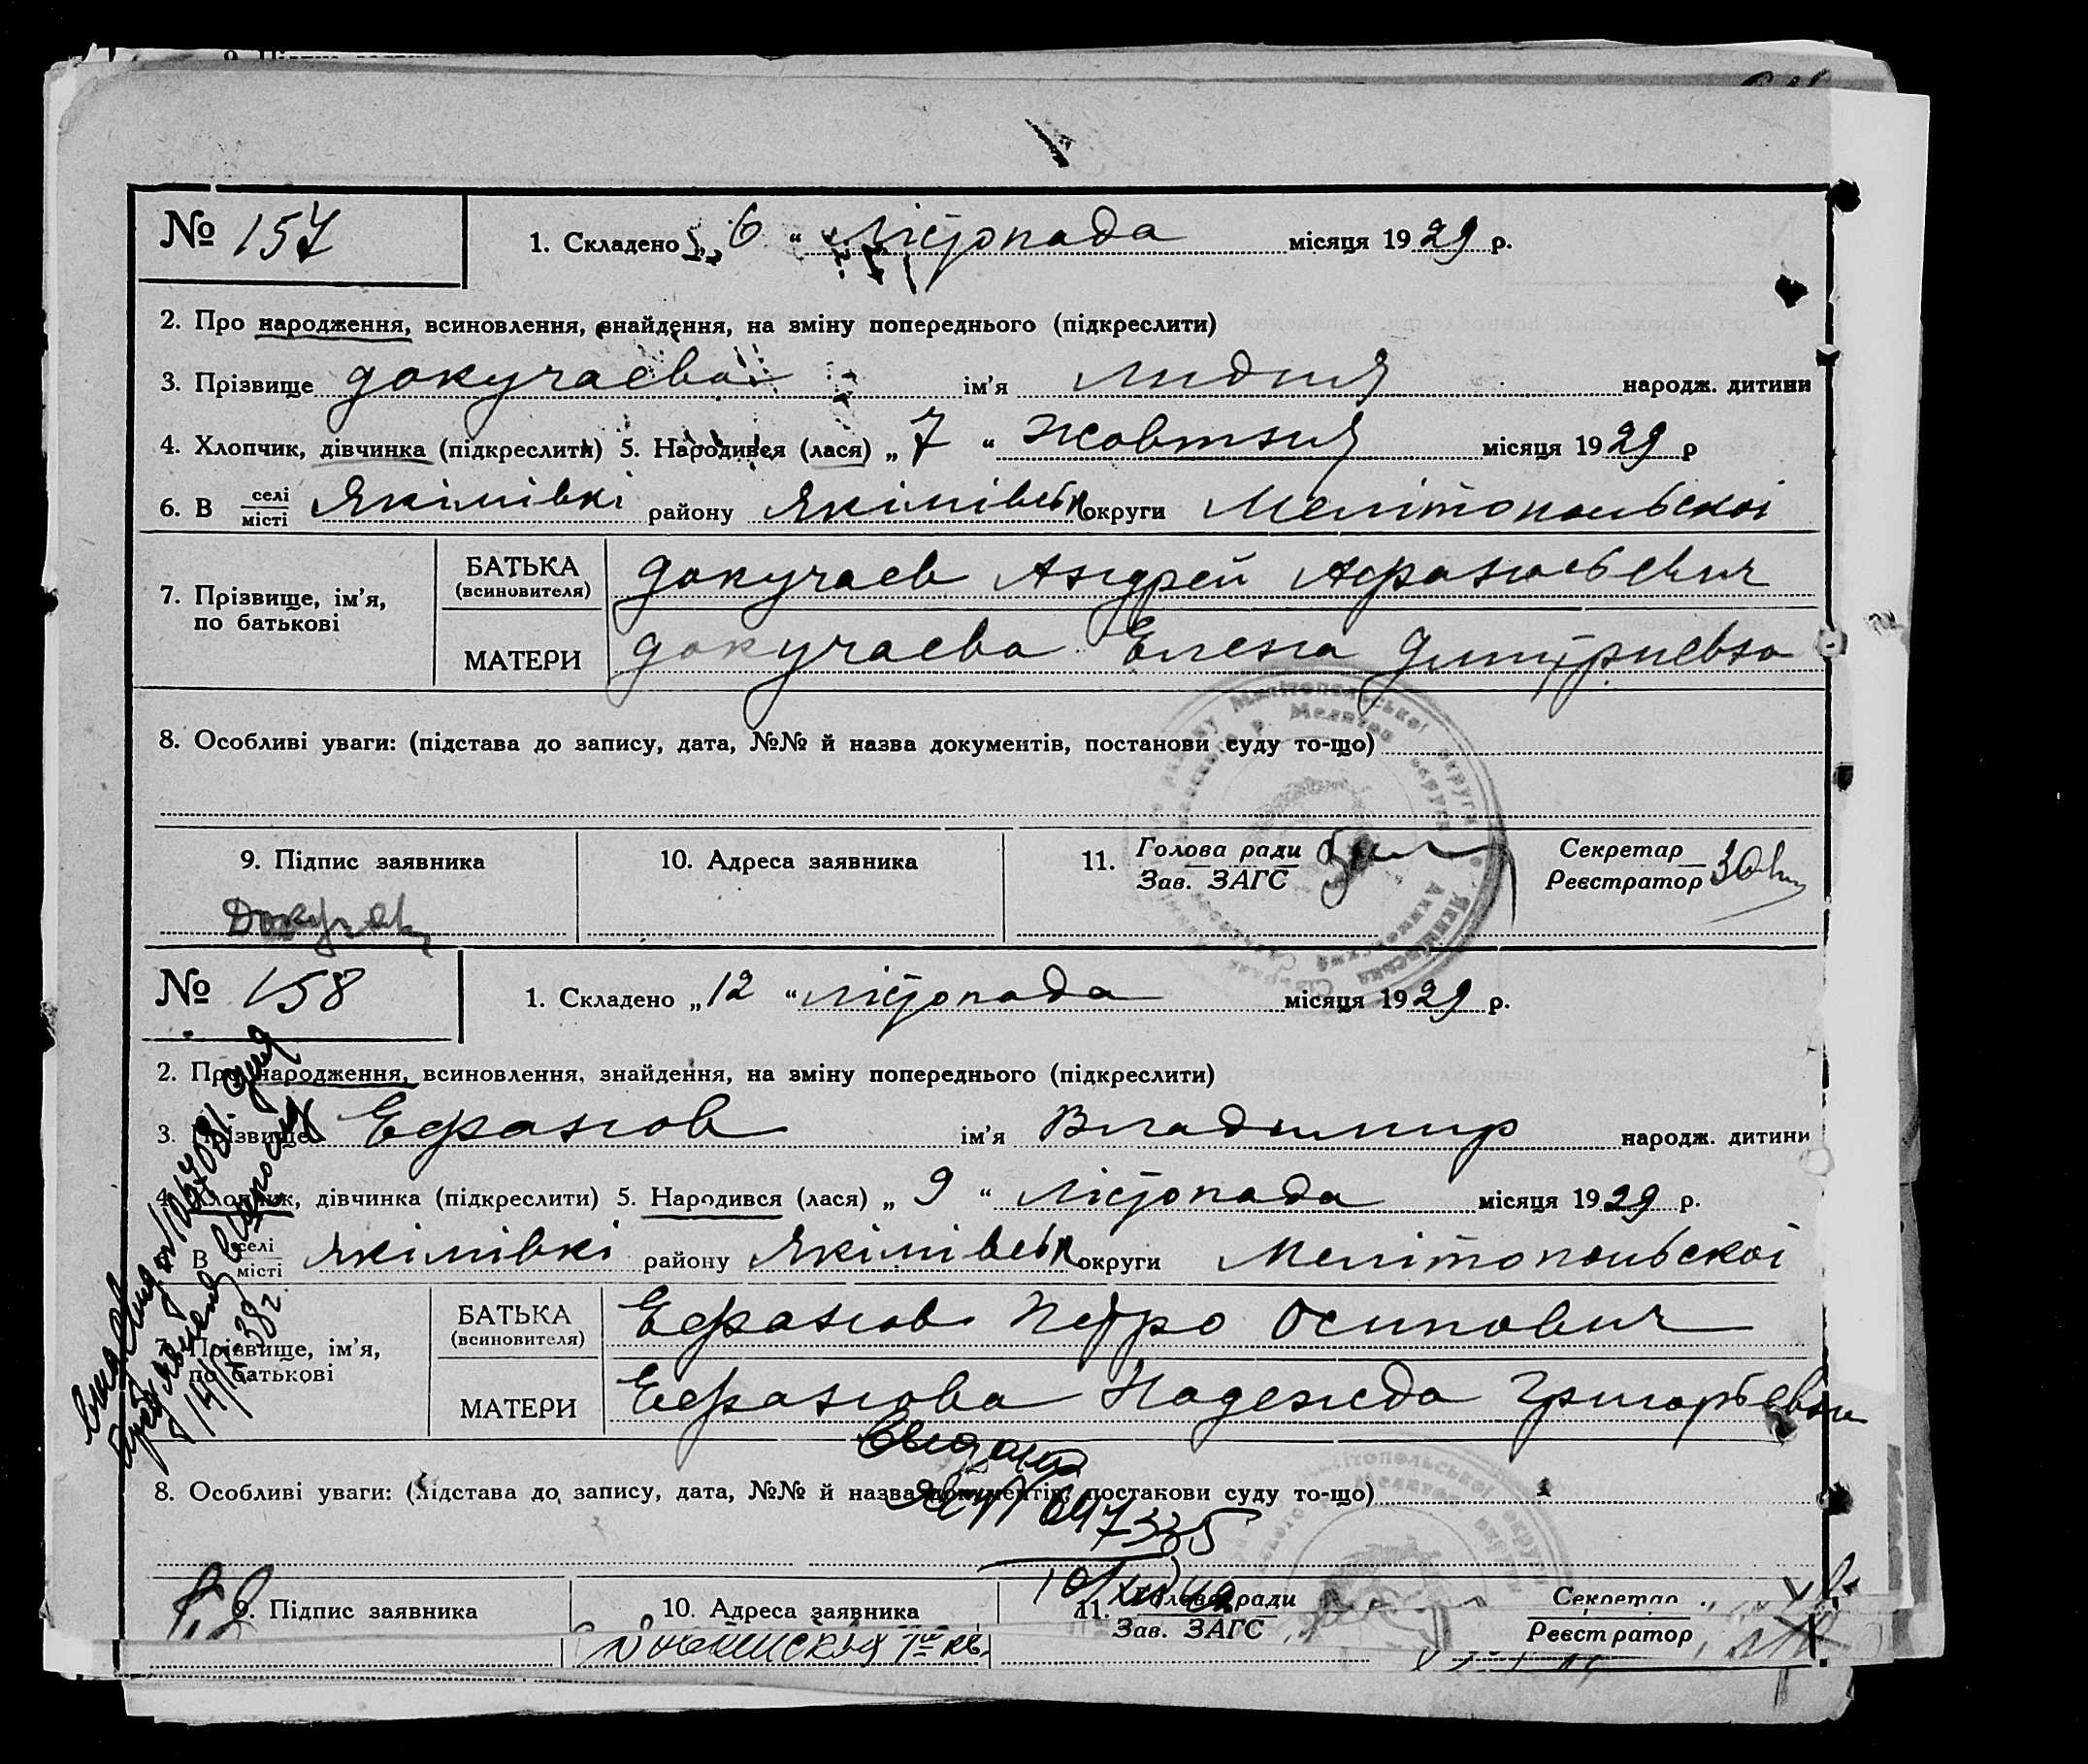 № 157
1. Складено „ 6 “ Лістопада місяця 1929 р.
2. Про народження, всиновлення, знайдення, на зміну попереднього (підкреслити)
3. Прізвище Докучаева ім’я Лидия народж. дитини
4. Хлопчик, дівчинка (підкреслити) 5. Народився (лася) „ 7 “ Жовтня місяця 1929 р
6. В селі місті Якімівкі району Якімівськ округи Мелітопольскоі
7. Прізвище, ім’я, по батькові
БАТЬКА (всиновителя) Докучаев Андрей Афанасьевич
МАТЕРИ Докучаева Елена Дмитриевна
8. Особливі уваги: (підстава до запису, дата, №№ й назва документів, постанови суду то-що)
9. Підпис заявника
10. Адреса заявника
11. Голова ради Зав. ЗАГС
Секретар Реєстратор
№ 158
1. Складено „ 12 “ Лістопада місяця 1929 р.
2. Про народження, всиновлення, знайдення, на зміну попереднього (підкреслити)
3. Прізвище Ефанов ім’я Владимир народж. дитини
4. Хлопчик, дівчинка (підкреслити) 5. Народився (лася) „ 9 “ Лістопада місяця 1929 р.
В селі місті Якімівкі району Якімівськ округи Мелітопольскоі
7. Прізвище, ім’я, по батькові
БАТЬКА (всиновителя) Ефанов Петро Осипович
МАТЕРИ Ефанова Надежда Григорьевна
8. Особливі уваги: (підстава до запису, дата, №№ й назва документів, постанови суду то-що)
9. Підпис заявника
10. Адреса заявника
11. Голова ради Зав. ЗАГС
Секретар Реєстратор